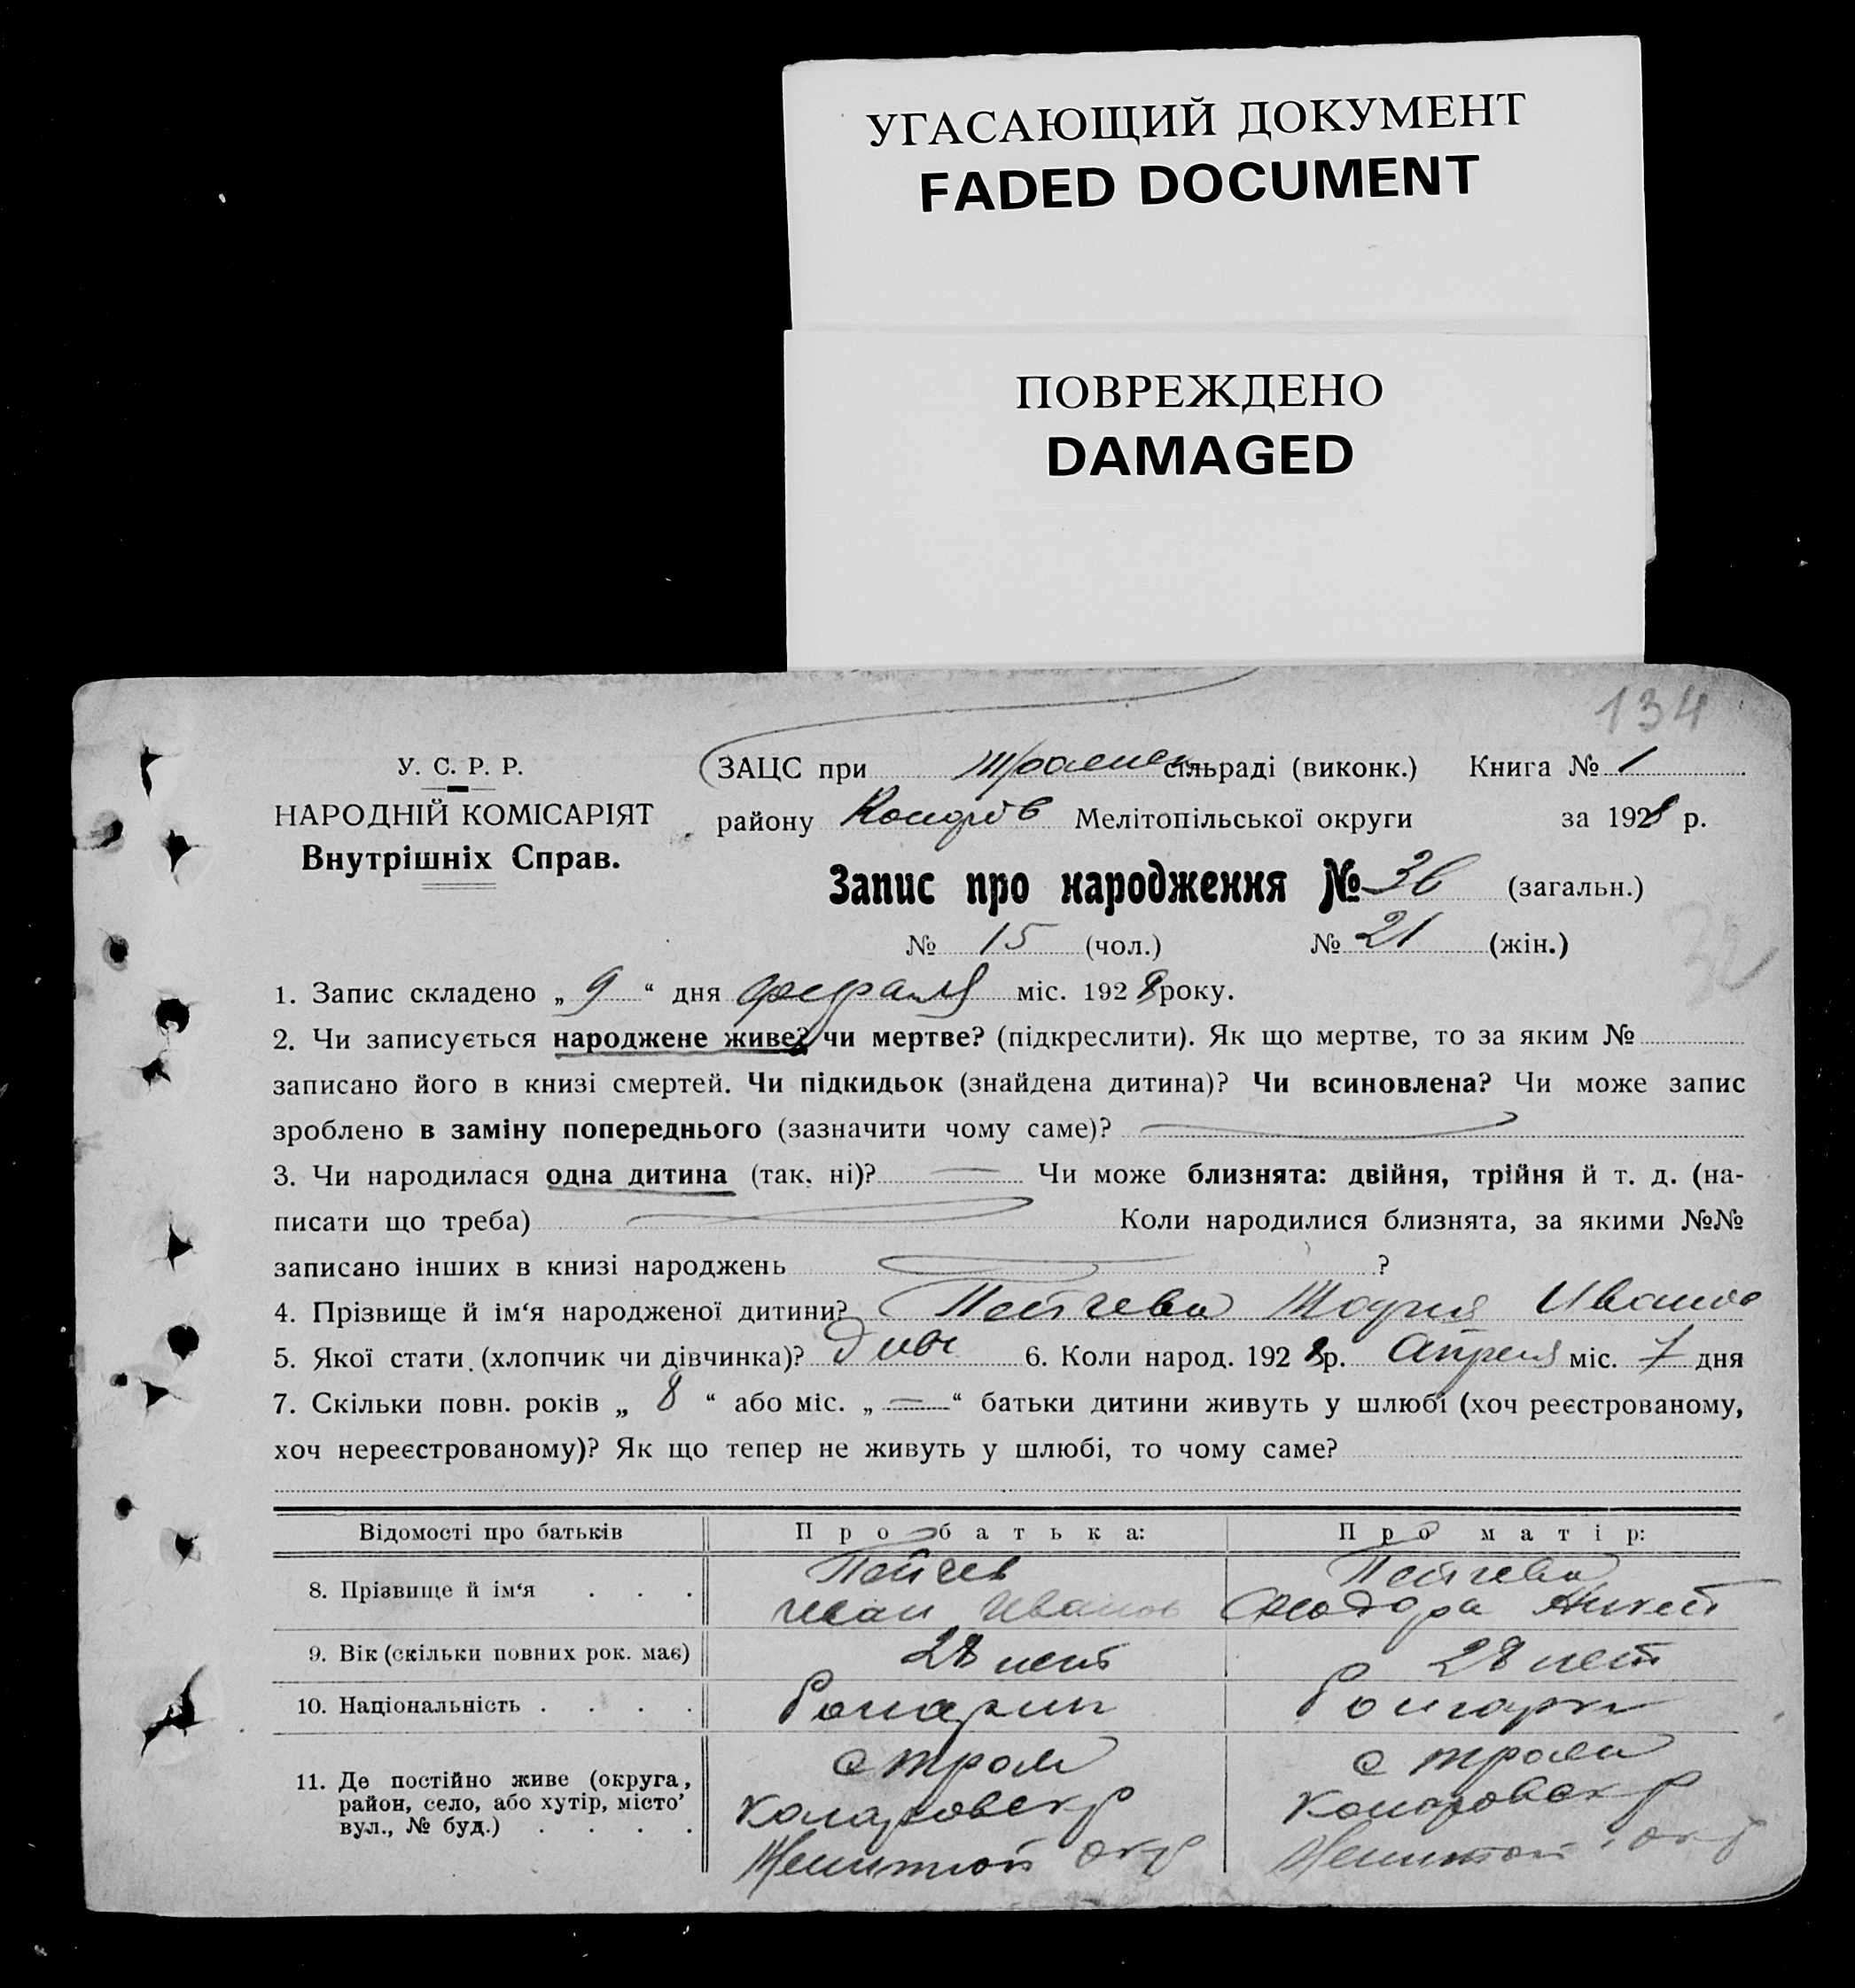 УГАСАЮЩИЙ ДОКУМЕНТ
FADED DOCUMENT
ПОВРЕЖДЕНО
DAMAGED
134
У. С. Р. Р.
НАРОДНІЙ КОМІСАРІЯТ
Внутрішніх Справ.
ЗАЦС при Троян сільраді (виконк.) Книга № 1
району Коларів Мелітопільської округи за 1928 р.
Запис про народження № 36 (загальн.)
№ 15 (чол.) № 21 (жін.)
32
1. Запис складено „ 9 “ дня февраля міс. 1928 року.
2. Чи записується народжене живе? чи мертве? (підкреслити). Як що мертве, то за яким №
записано його в книзі смертей. Чи підкидьок (знайдена дитина)? Чи всиновлена? Чи може запис
зроблено в заміну попереднього (зазначити чому саме)?
3. Чи народилася одна дитина (так, ні)? — Чи може близнята: двійня, трійня й т. д. (на-
писати що треба) Коли народилися близнята, за якими №№
записано інших в книзі народжень ?
4. Прізвище й ім‘я народженої дитини? Пейчева Мария Иванов
5. Якої стати (хлопчик чи дівчинка)? дивч 6. Коли народ. 1928 р. Апреля міс. 7 дня
7. Скільки повн. років „ 8 “ або міс. „ — “ батьки дитини живуть у шлюбі (хоч реєстрованому,
хоч нереєстрованому)? Як що тепер не живуть у шлюбі, то чому саме?
Відомості про батьків Про батька: Про матір:
8. Прізвище й ім‘я . . . Пейчев Иван Иванов Пейчева Феодора
9. Вік (скільки повних рок. має) 28 лет 28 лет
10. Національність . . . . Болгарин Болгарк
11. Де постійно живе (округа, район, село, або хутір, місто’ вул., № буд.) . . . . с Троян Коларовск р Мелитоп окр с Троян Коларовск р Мелитоп окр